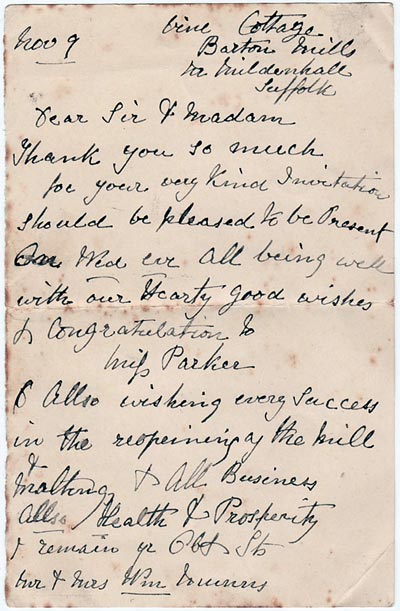 Nov 9
Vine Cottage
Barton Mills
Nr Mildenhall
Suffolk
Dear Sir & Madam
Thank you so much
for your very Kind Invitation
should be pleased to be Present
on Wed eve All being well
with our Hearty good wishes
& Congratulation to
Miss Parker
& Allso wishing every Success
in the reopeining of the Mill
& Malting & All Business
Allso Health & Prosperity
I remain yr Obt St
Mr & Mrs Wm